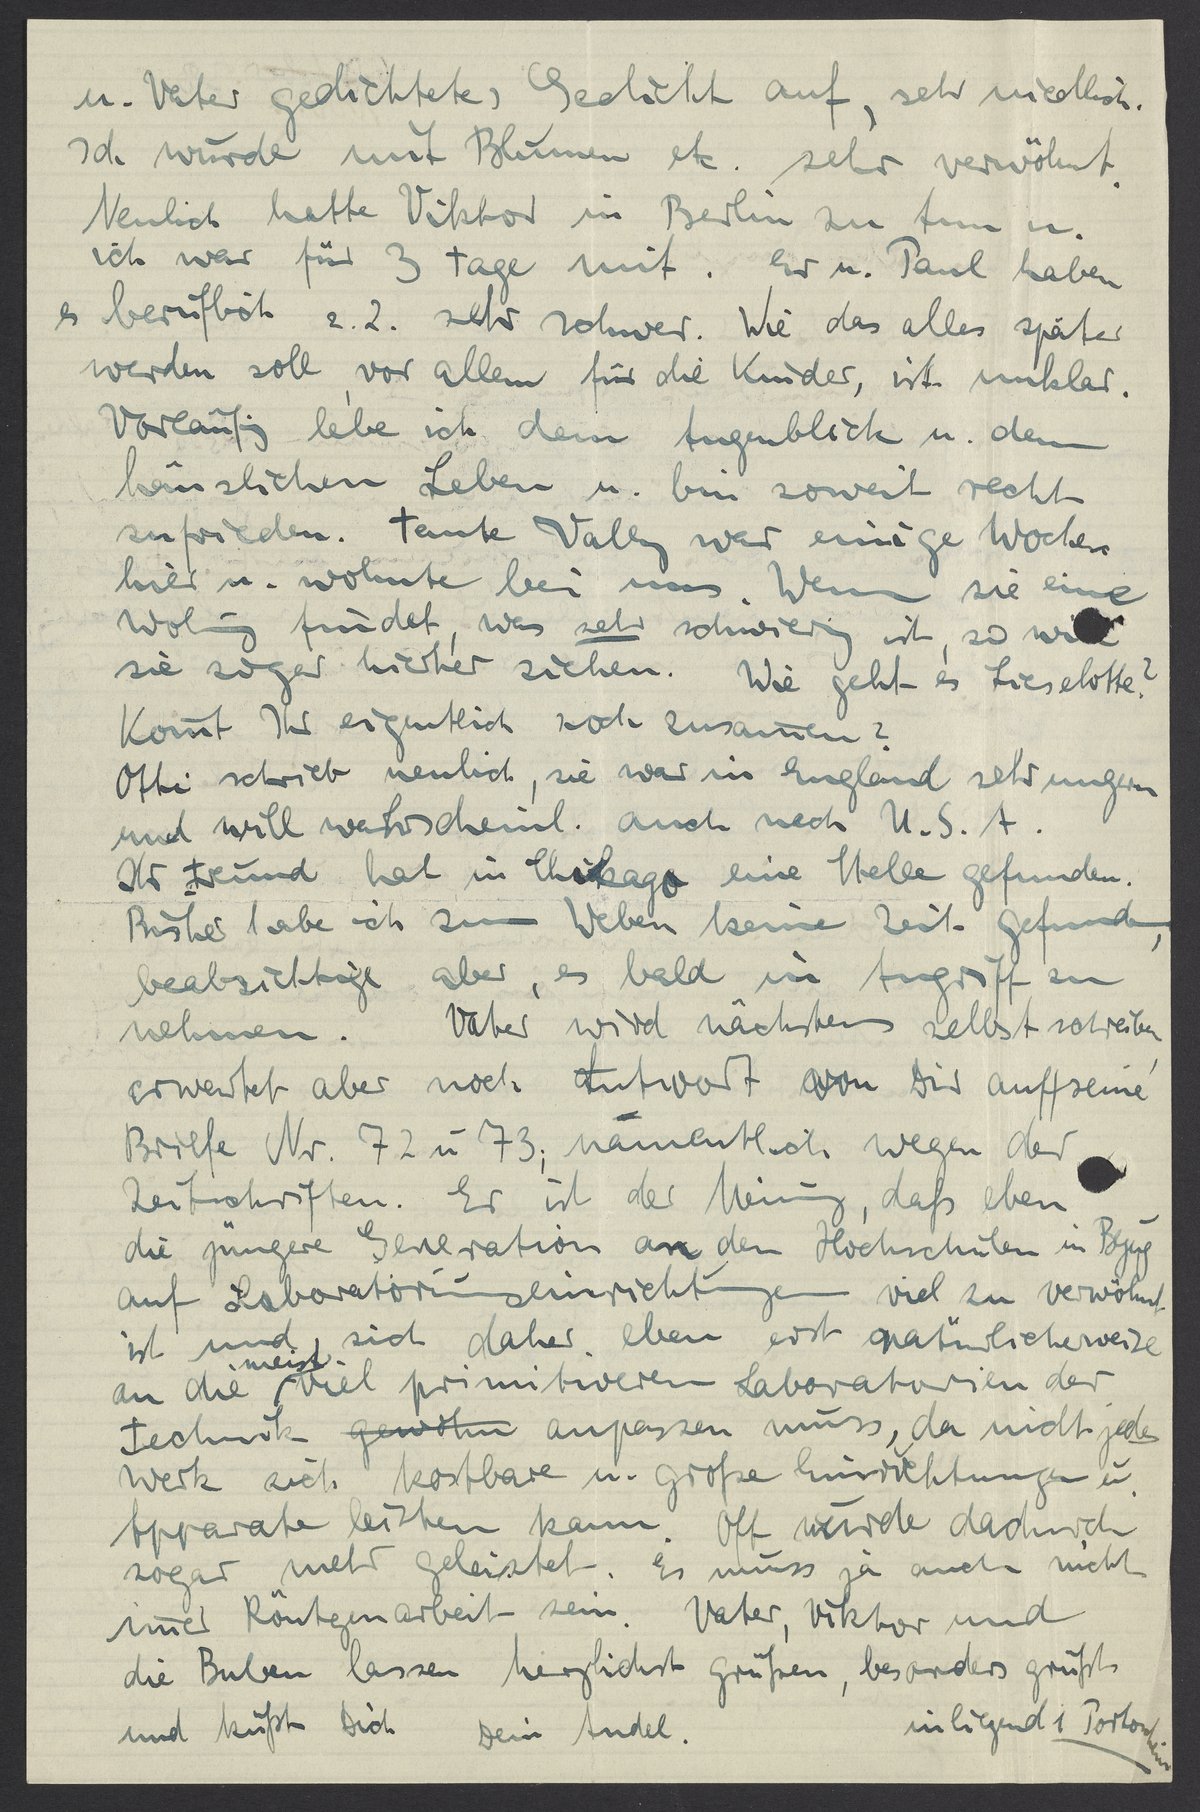 u. Vater gedichtetes Gedicht auf, sehr niedlich.
Ich wurde mit Blumen etc. sehr verwöhnt.
Neulich hatte Viktor in Berlin zu tun u.
ich war für 3 Tage mit. Er u. Paul haben
es beruflich z. Z. sehr schwer. Wie das alles später
werden soll, vor allem für die Kinder, ist unklar.
Vorläufig lebe ich dem Augenblick u. dem
häuslichen Leben u. bin soweit recht
zufrieden. Tante Vally war einige Wochen
hier u. wohnte bei uns. Wenn sie eine
Wohng findet, was sehr schwierig ist, so will
sie sogar hierher ziehen. Wie geht es Lieselotte?
Kommt Ihr eigentlich noch zusammen?
Otti schrieb neulich, sie war in England sehr ungern
und will wahrscheinl. auch nach U.S.A.
Ihr Freund hat in Chikago eine Stelle gefunden.
Bisher habe ich zum Weben keine Zeit gefunden,
beabsichtige aber, es bald in Angriff zu
nehmen. Vater wird nächstens selbst schreiben,
erwartet aber noch Antwort von Dir auf seine
Briefe Nr. 72 u 73, namentlich wegen der
Zeitschriften. Er ist der Meinung, daß eben
die jüngere Generation an den Hochschulen in Bezug
auf Laboratoriumseinrichtungen viel zu verwöhnt
ist und sich daher eben erst natürlicherweise
an die meist viel primitiveren Laboratorien der
Technik gewöhn anpassen muss, da nicht jedes
Werk sich kostbare u. große Einrichtungen u.
Apparate leisten kann. Oft würde dadurch
sogar mehr geleistet. Es muss ja auch nicht
immer Röntgenarbeit sein. Vater, Viktor und
die Buben lassen herzlichst grüßen, besonders grüßt
und küßt Dich Dein Andel. inliegend 1 Portoschein